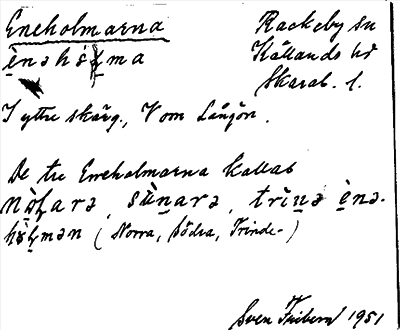 Eneholmarna
Rackeby sn
ènəhó̤ɫma
Kållands hd
Skarab. l.
I yttre skärg., V om Långön.
De tre Eneholmarna kallas
nò̤ɽarə, sùnarə, trìnə ènə-
hòɫmən (Norra, Södra, Trinde-)
Sven Fribern 1951